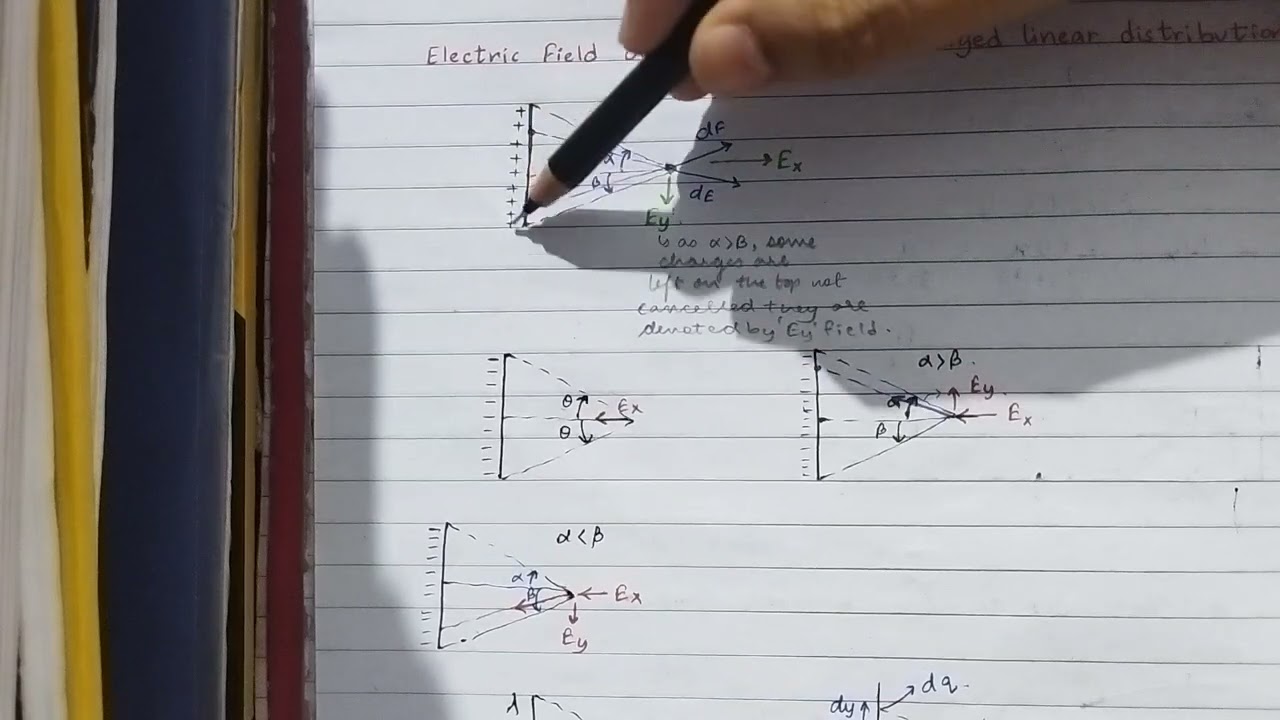 Electric field
linear distribution
+
+
+
+
+
+
+
α
β
dE
Ex
dE
Ey
↳ as α>β, some
charges are
left on the top not
cancelled they are
denoted by 'Ey' field.
θ
θ
Ex
α>β.
α
β
Ey
Ex
α<β
α
β
Ex
Ey
λ
dy
dq.